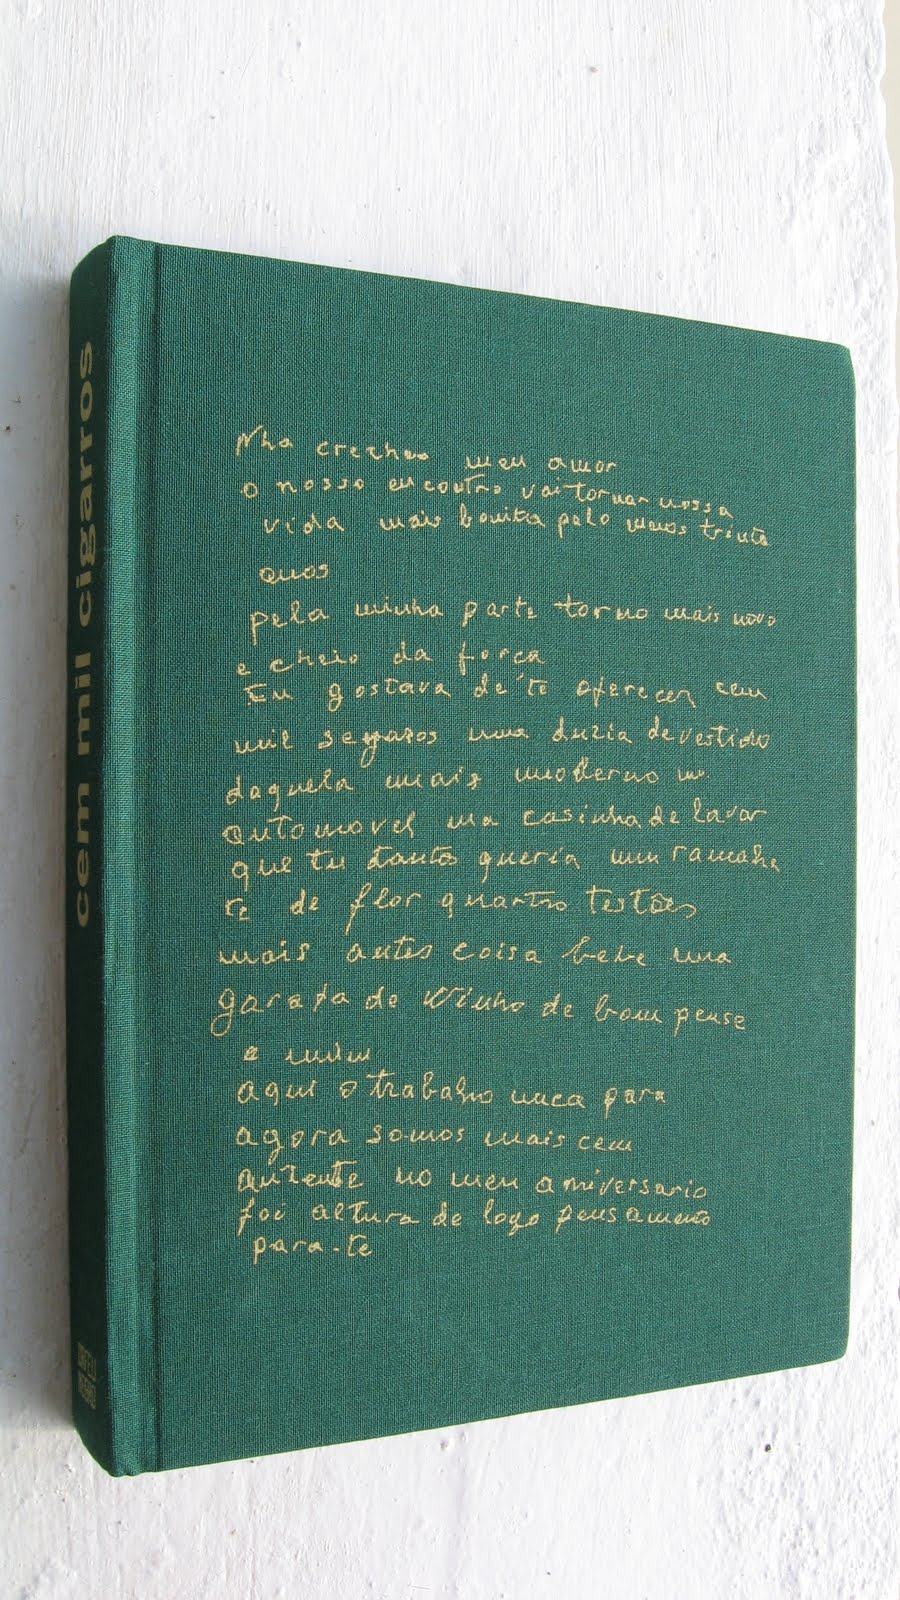 cem mil cigarros
ORFEU
NEGRO
Nha crecheo meu amor
o nosso encontro vai tornar nossa
vida mais bonita pelo menos trinta
anos
pela minha parte torno mais novo
e cheio da força
Eu gostava de te oferecer cem
mil segaros uma duzia de vestido
daquela mais moderno um
automovel ma casinha de lavar
que tu tantos queria um ramalhe
te de flor quartro testões
mais antes coisa bebe uma
garafa de vinho de bom pense
e mim
aqui o trabalho nuca para
agora somos mais cem
antente no meu aniversario
foi altura de logo pensamento
para-te